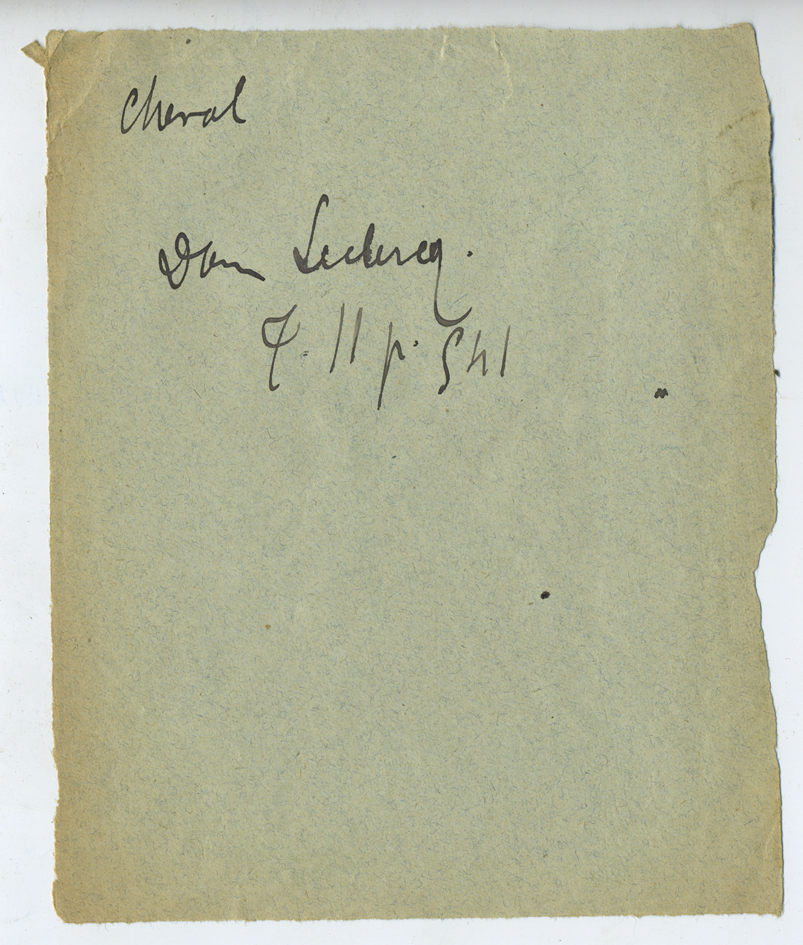 Cheval
Dom Leclercq.
T. II p. 541